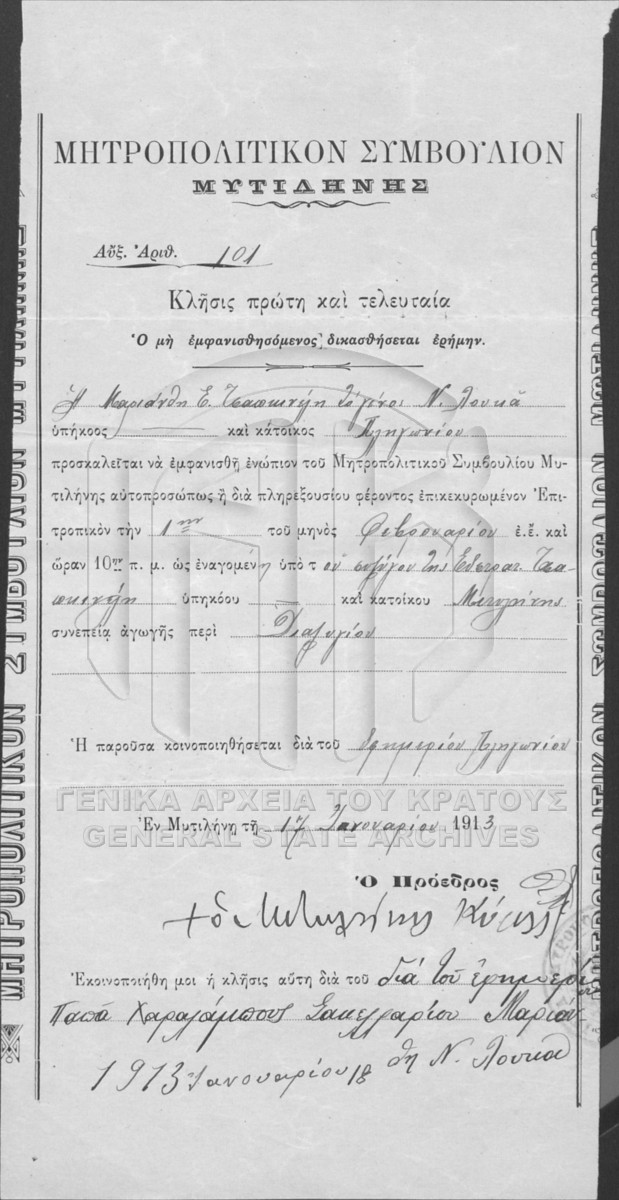 ΜΗΤΡΟΠΟΛΙΤΙΚΟΝ ΣΥΜΒΟΥΛΙΟΝ
ΜΥΤΙΛΗΝΗΣ
Αὔξ. Ἀριθ. 101
Κλῆσις πρώτη καὶ τελευταία
Ὁ μὴ ἐμφανισθησόμενος δικασθήσεται ἐρήμην.
Ἡ Μαριάνθη Ε. Τσαπκινζῆ τὸ γένος Ν. Λουκᾶ
ὑπήκοος — καὶ κάτοικος Πληγωνίου
προσκαλεῖται νὰ ἐμφανισθῇ ἐνώπιον τοῦ Μητροπολιτικοῦ Συμβουλίου Μυ-
τιλήνης αὐτοπροσώπως ἢ διὰ πληρεξουσίου φέροντος ἐπικεκυρωμένον Ἐπι-
τροπικὸν τὴν 1ην τοῦ μηνὸς Φεβρουαρίου ἐ.ἔ. καὶ
ὥραν 10ην π. μ. ὡς ἐναγομένη ὑπὸ τοῦ συζύγου της Εὐστρατ. Τσα-
πκινζῆ ὑπηκόου — καὶ κατοίκου Μιτυλήνης
συνεπείᾳ ἀγωγῆς περὶ Διαζυγίου
Ἡ παροῦσα κοινοποιηθήσεται διὰ τοῦ ἐφημερίου Πληγωνίου
ΓΕΝΙΚΑ ΑΡΧΕΙΑ ΤΟΥ ΚΡΑΤΟΥΣ
GENERAL STATE ARCHIVES
Ἐν Μυτιλήνῃ τῇ 17 Ἰανουαρίου 1913
Ὁ Πρόεδρος
+ ὁ Μιτυλήνης Κύριλλος
Ἐκοινοποιήθη μοι ἡ κλῆσις αὕτη διὰ τοῦ διὰ τοῦ ἐφημερίου
Παπᾶ Χαραλάμπους Σακελλαρίου Μαριάν
θη Ν. Λουκᾶ
1913 Ἰανουαρίου 18
ΜΗΤΡΟΠΟΛΙΤΙΚΟΝ ΣΥΜΒΟΥΛΙΟΝ ΜΥΤΙΛΗΝΗΣ
ΜΗΤΡΟΠΟΛΙΤΙΚΟΝ ΣΥΜΒΟΥΛΙΟΝ ΜΥΤΙΛΗΝΗΣ